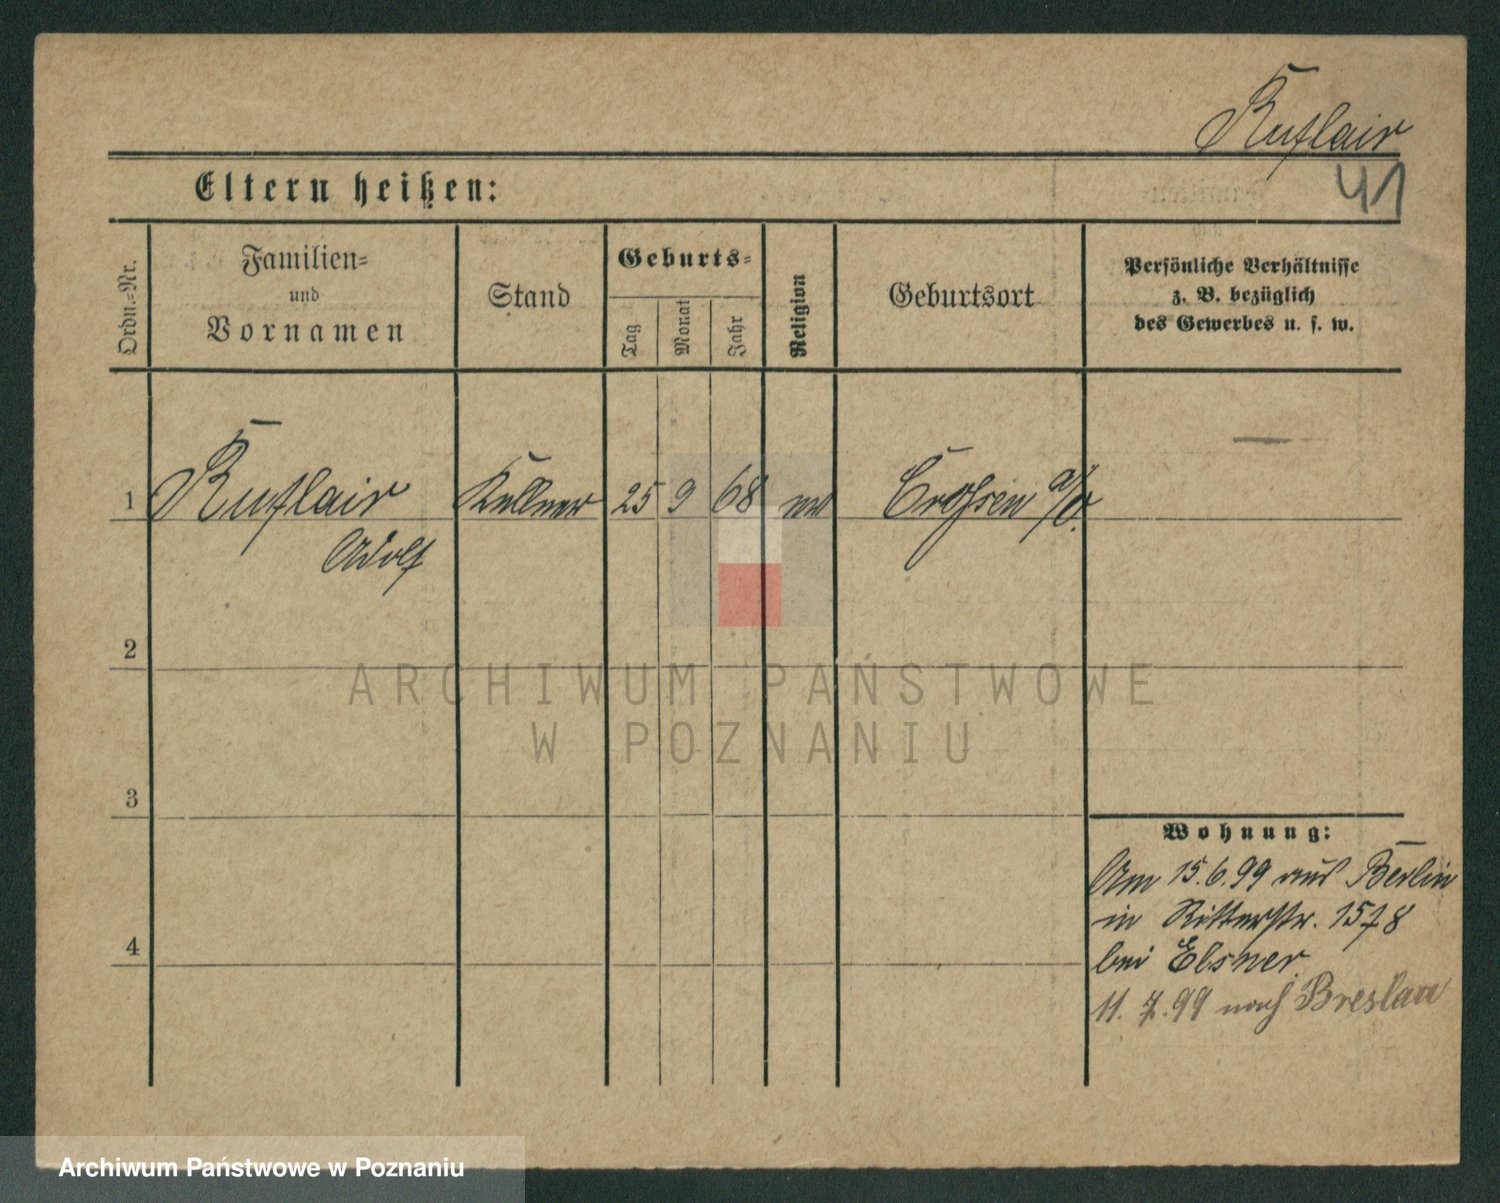 Kuflair
41
Eltern heißen:
Ordn.=Nr.
Familien=
und
Vornamen
Stand
Geburts=
Tag
Monat
Jahr
Religion
Geburtsort
Persönliche Verhältnisse
z. B. bezüglich
des Gewerbes u. s. w.
1
Kuflair
Adolf
Kellner
25
9
68
Crossen a/O.
2
3
4
ARCHIWUM PAŃSTWOWE
W POZNANIU
Wohnung:
Am 15.6.99 aus Berlin
in Ritterstr.
bei Elsner
11.7.99 nach Breslau
Archiwum Państwowe w Poznaniu